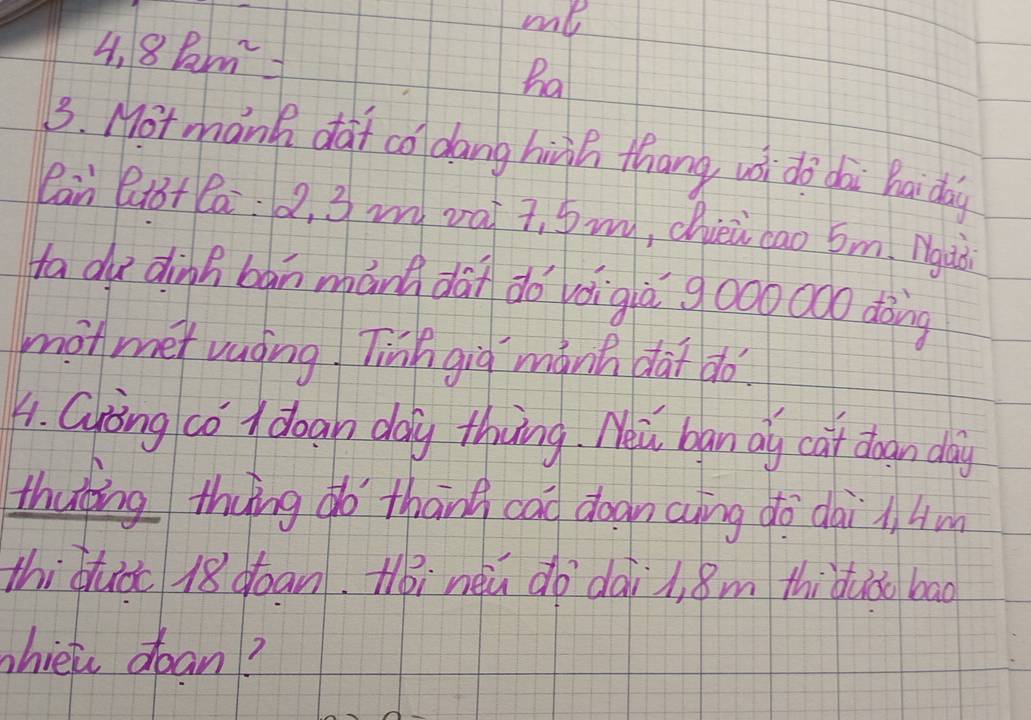 ml
4,8 km² =
ha
3. Một mảnh đất có dạng hình thang, với độ dài hai đáy
lần lượt là: 2,3 m và 7,5 m, chiều cao 5m. Người
ta dự định bán mảnh đất đó với giá 9 000 000 đồng
một mét vuông. Tính giá mảnh đất đó.
4. Cường có 1 đoạn dây thừng. Nếu bạn ấy cắt đoạn dây
thường thừng đó thành các đoạn cùng độ dài 1,4m
thì được 18 đoạn. Hỏi nếu độ dài 1,8m thì được bao
nhiêu đoạn?